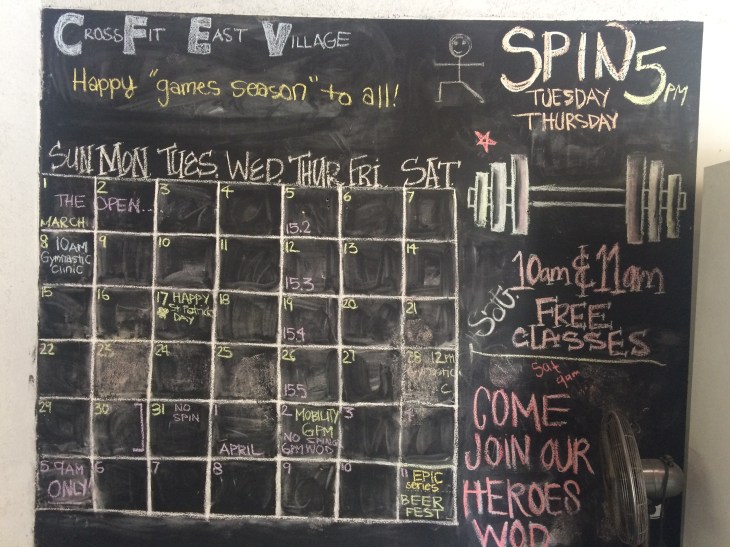 CROSSFIT EAST VILLAGE
Happy "games season" to all!
SPIN 5PM
TUESDAY
THURSDAY
SUN MON TUES WED THUR FRI SAT
1 2 3 4 5 6 7
THE OPEN...
MARCH 15.2
8 10AM 9 10 11 12 13 14
Gymnastic
Clinic 15.3
15 16 17 HAPPY 18 19 20 21
St Patricks
DAY 15.4
22 23 24 25 26 27 28 12PM
15.5 C
29 30 31 NO 1 2 MOBILITY 3 4
SPIN 6PM
NO SPIN
APRIL 6PM WOD
5 9AM 6 7 8 9 10 11 EPIC
ONLY! series
BEER
FEST
Sat:
10am & 11am
FREE
CLASSES
Sat
9am
COME
JOIN OUR
HEROES
WOD